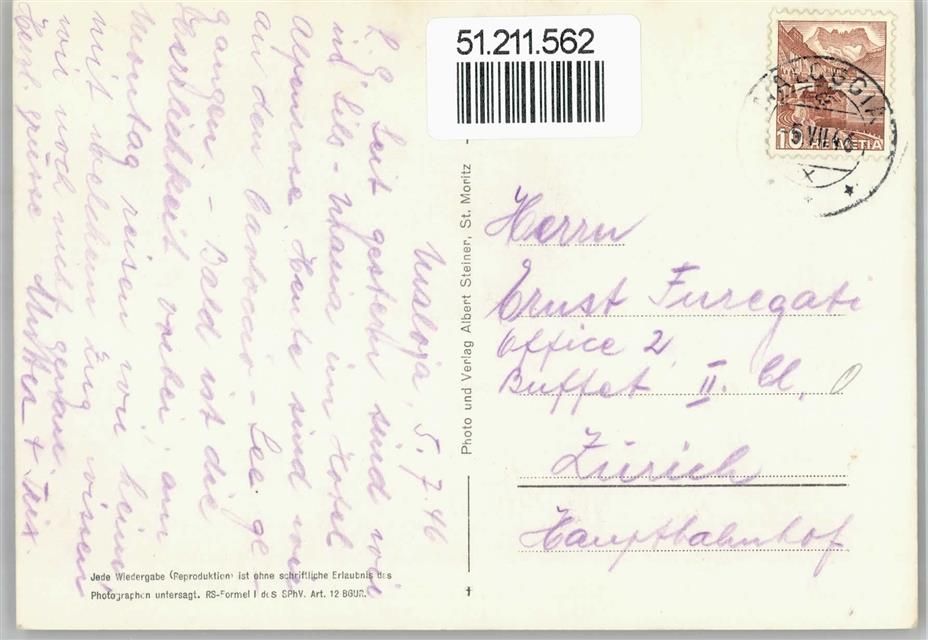 51.211.562
MALOGGIA
5.VII.46
10 HELVETIA
Maloja, 5.7.46
L. E. Seit gestern sind wir
in Sils-Maria im Hotel
Alpenrose. Heute sind wir
an den Cavloccio-See ge
gangen. Bald ist die
Herrlichkeit vorbei, am
Montag reisen wir heim
mit welchem Zug wissen
wir noch nicht genau.
Herzl. Grüsse Mutter + Trix.
Photo und Verlag Albert Steiner, St. Moritz
Herrn
Ernst Furegati
Office 2
Buffet II. Cl.
Zürich
Hauptbahnhof
Jede Wiedergabe (Reproduktion) ist ohne schriftliche Erlaubnis des
Photographen untersagt. RS-Formel I des SPhV. Art. 12 BGUR.